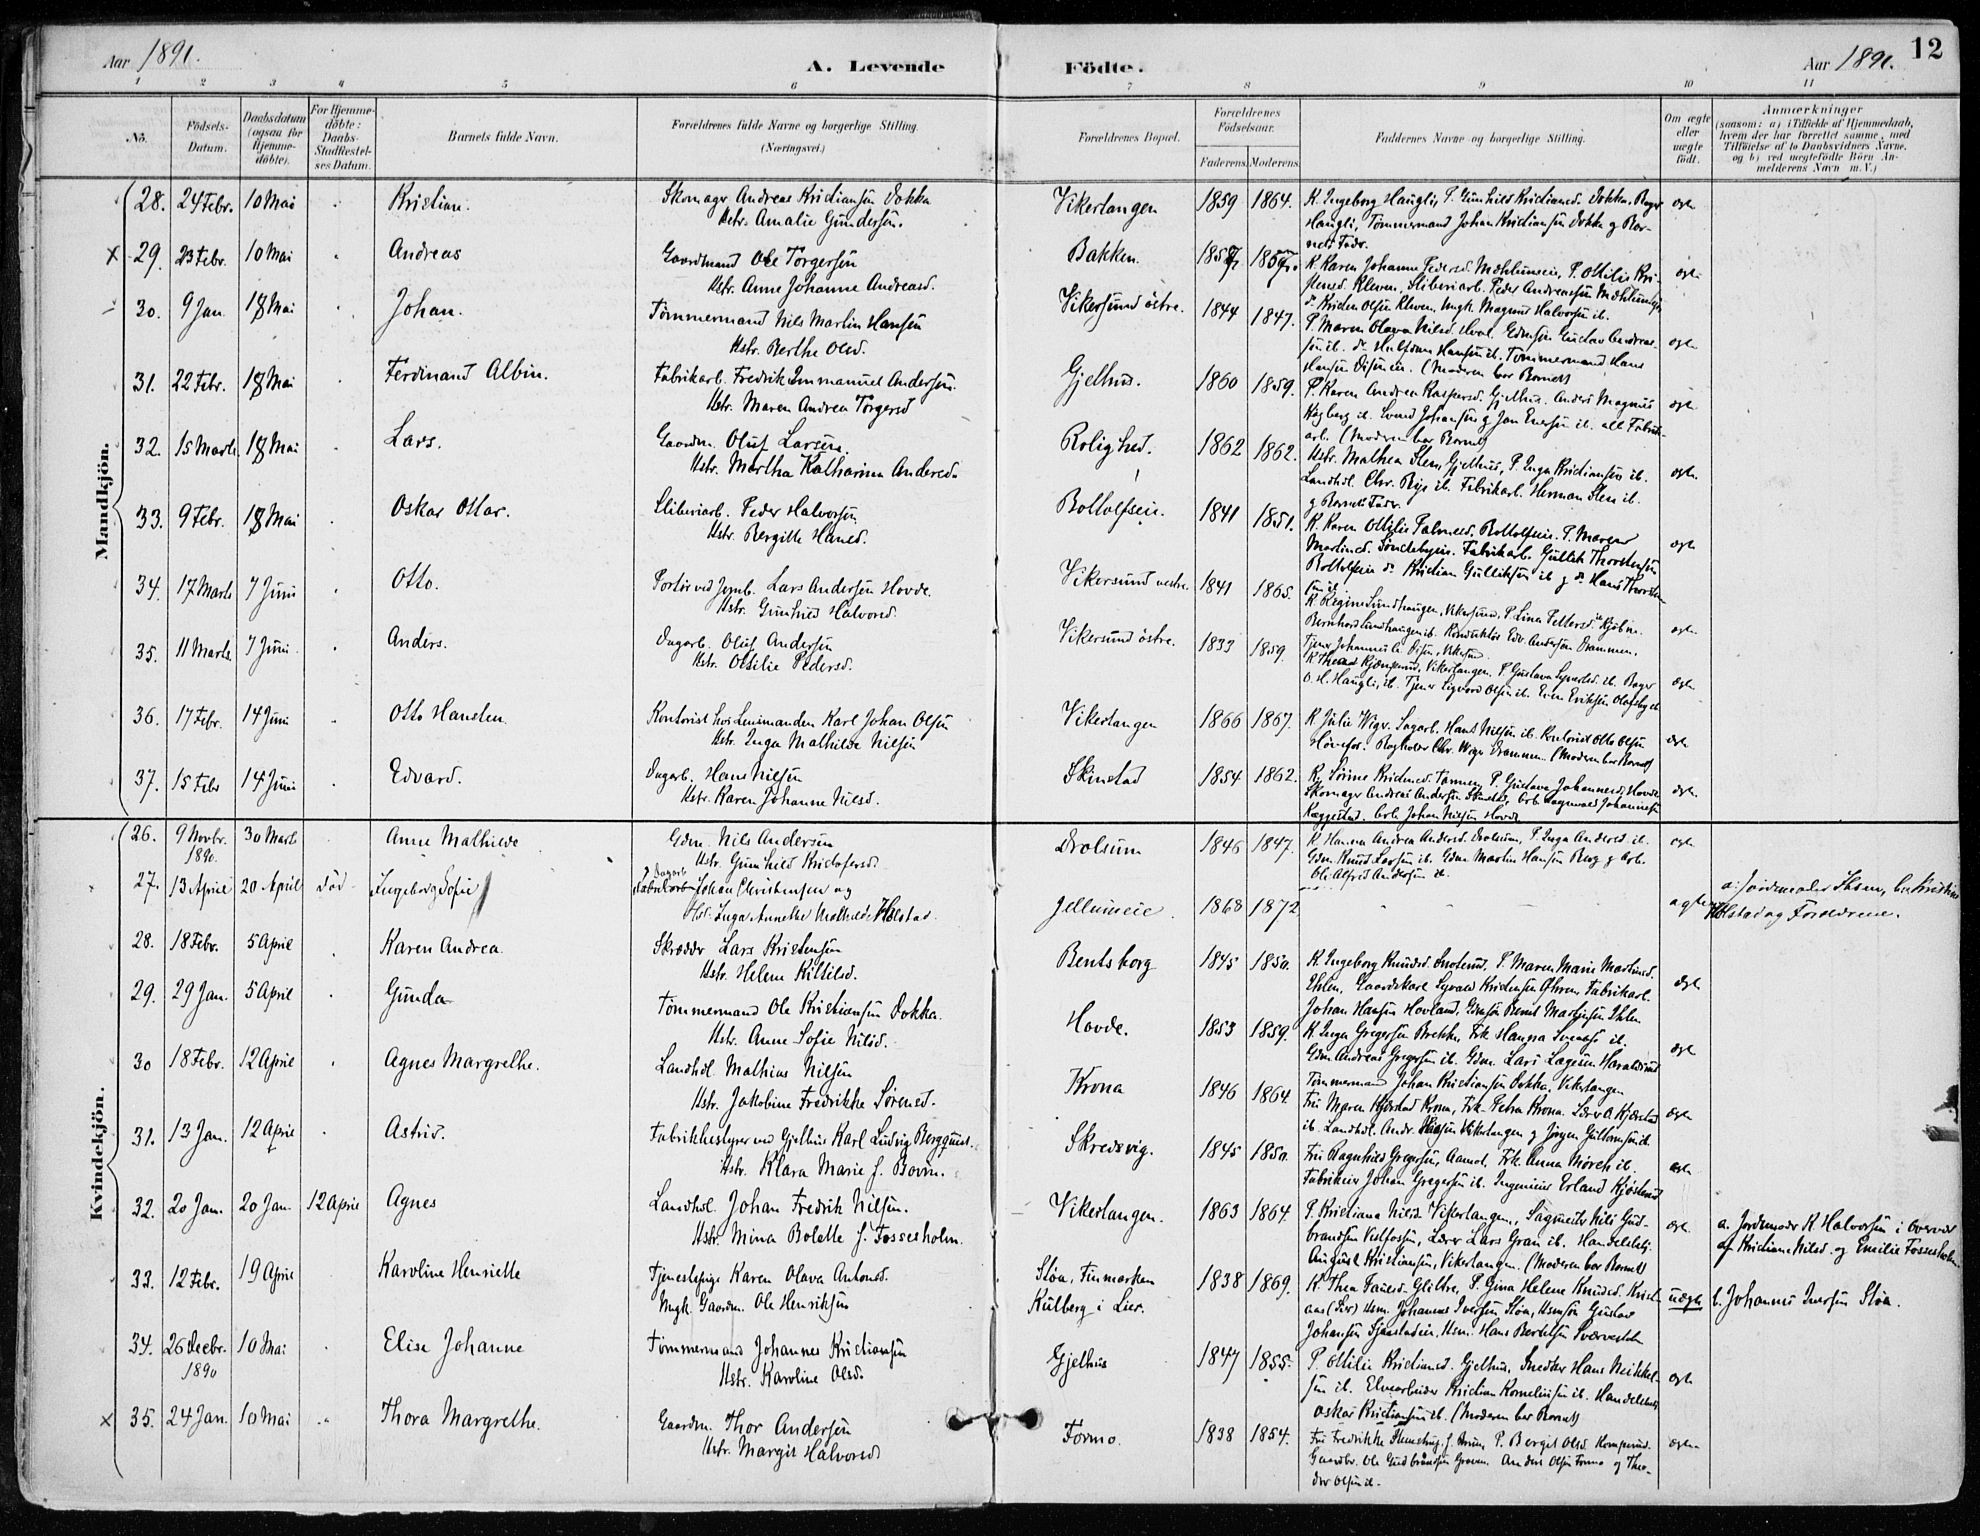 Aar 1891.
A. Levende Födte.
Aar 1891.
12
1 2 3 4 5 6 7 8 9 10 11
No.
Födsels-Datum.
Daabsdatum (ogsaa for Hjemme-döbte).
For Hjemme-döbte: Daabs-Stadfæstel-ses Datum.
Barnets fulde Navn.
Forældrenes fulde Navne og borgerlige Stilling. (Næringsvei.)
Forældrenes Bopæl.
Forældrenes Födselsaar.
Faderens. Moderens.
Faddernes Navne og borgerlige Stilling.
Om ægte eller uægte födt.
Anmærkninger
(saasom: a) i Tilfælde af Hjemmedaab, hvem der har forrettet samme, med Tilföielse af to Daabsvidners Navne, og b) ved uegtefödte Börn An-melderens Navn m.V.)
Mandkjön.
28. 24 Febr. 10 Mai Kristian. Skomager Andreas Kristiansen Dokka Hstr. Amalie Gundersen. Vikerlangen 1859 1864.
K. Ingeborg Haugli, P. Gunhild Kristiansd. Dokka, Bager
Haugli, Tømmermand Johan Kristiansen Dokka og Bar-
nets Fader.
ægte
x 29. 23 Febr. 10 Mai Andreas Gaardmand Ole Torgersen Hstr. Anne Johanne Andreasd. Bakken
K. Karen Johanne Pedersd. P. Ottilie Kri-
stensd. Kleven, Sliberiarb. Peder Andreassen
Kristen Olsen Kleven, Ungk. Magnus Halvorsen ib.
ægte
30. 9 Jan. 18 Mai Johan. Tømmermand Nils Martin Hansen Hstr. Berthe Olsd. Vikersund östre. 1844 1847.
P. Maren Olava Nilsd. Gustav Andreas-
sen ib. Halfdan Hansen ib. Tømmermand Hans
Hansen (Moderen bar Barnet)
ægte
31. 22 Febr. 18 Mai Ferdinand Albin. Fabrikarb. Fredrik Immanuel Andersen. Hstr. Maren Andrea Torgersd Gjelhus. 1860 1859.
P. Karen Andrea Kaspersd. Gjelhus. Anders Magnus
ib. Svend Johansen og Jan Iversen ib. alle Fabrik-
arb. (Moderen bar Barnet)
ægte
32. 15 Marts 18 Mai Lars. Gaardm. Oluf Larsen Hstr. Martha Katharina Andersd. Rolighed. 1862 1862.
Hstr. Mathea Steen, Gjelhus, P. Inga Kristiansen ib.
Landhdl. Chr. ib. Fabrikarb. Herman Steen ib.
og Barnets Fader
ægte
33. 9 Febr. 18 Mai Oskar Ottar. Sliberiarb. Peder Halvorsen Hstr. Bergitte Hansd. Bottolfseie. 1841 1851.
K. Karen Ottilie Palmesd. Bottolfseie. P. Margar
Martinsd. Fabrikarb. Gullik Thorstensen
Bottolfseie Kristian Gulliksen ib og Hans Thorsten-
sen ib
ægte
34. 17 Marts 7 Juni Otto. Portör ved Jernb. Lars Andersen Hovde. Hstr. Gunhild Halvorsd. Vikersund vestre. 1841 1865.
K. Regine Sundhaugen, Vikersund, P. Lina Pettersd.
Bernhard Sundhaugen ib. Konduktör Edv. Andersen Drammen.
ægte
35. 11 Marts 7 Juni Anders. Dagarb. Oluf Andersen Hstr. Ottilie Pedersd. Vikersund östre. 1833 1859.
Vikerlangen. P. Gustava ib. Bager
O. H. Haugli, ib. Tjener Sigvard Olsen ib. Even Eriksen
ægte
36. 17 Febr. 14 Juni Otto Hansten. Kontorist hos Lensmanden Karl Johan Olsen Hstr. Inga Mathilde Nilsen Vikerlangen 1866 1867.
K. Julie Wiger. Sagarb. Hans Nilsen ib. Kontorist Otto Olsen
Bogholder Chr. Wiger Drammen. (Moderen bar Barnet)
ægte
37. 15 Febr 14 Juni Edvard. Dagarb. Hans Nilsen Hstr. Karen Johanne Nilsd. Skinstad 1854 1862.
K. Sörine Kristensd. P. Gustava Johannesd, Hovde
Skomager Andreas Andersen Skinstad, Arb. Johannesen
Arb. Johan Nilsen Hovde
ægte
Kvindekjön.
26. 9 Novbr. 1890. 30 Marts Anne Mathilde Gdm. Nils Andersen Hstr. Gunhild Kristofersd. Drolsum 1846 1847.
K. Hanna Andrea Andersd. Drolsum, P. Inga Andersd. ib.
Gdm. Knut Larsen ib. Gdm. Martin Hansen Berg og Arb.
Ole Alfred Andersen ib.
ægte
27. 13 April 20 April död Ingeborg Sofie Dagarb Johan Christensen og Hst. Inga Annette Mathilde Holstad Jellumeie 1868 1872
ægte
a: Jordemoder
Holstad og Forældrene.
28. 18 Febr. 5 April Karen Andrea Skrædder Lars Kristensen Hstr. Helene Kittilsd. Bentsborg 1845 1850.
K. Ingeborg Knudsd. P. Maren Marie Martinsd.
Ihlen. Gaardskarl Syvald Kristensen Fabrikarb.
Johan Hansen Hovland, Bernt Martinsen Ihlen
ægte
29. 29 Jan. 5 April Gunda Tømmermand Ole Kristiansen Dokka. Hstr. Anne Sofie Nilsd. Hovde. 1853 1859.
K. Inga Gregersen Frk. Hanna Svendsd. ib.
Gdm. Andreas Gregersen ib. Gdm. Lars
Tømmermand Johan Kristiansen Dokka, Vikerlangen
ægte
30 18 Febr. 12 April Agnes Margrethe. Landhdl. Mathias Nilsen Hstr. Jakobine Fredrikke Sörensd. Krona 1846 1864.
Fru Maren Kjærstad Krona, Frk. Petra Krona. Lærer O. Kjærstad
ib. Landhdl. Andr. Vikerlangen og Jörgen Guttormsen ib.
ægte
31. 13 Jan. 12 April Astrid. Fabrikbestyrer ved Gjelhus Karl Ludvig Bergquist. Hstr. Klara Marie f. Skredsvig. 1845 1850.
Fru Ragnhild Gregersen, Aamot. Frk. Anna ib.
Fabrikeier Johan Gregersen ib. Ingeniör Erland
ægte
32. 20 Jan. 20 Jan. 12 April Agnes Landhdl. Johan Fredrik Nilsen. Hstr. Mina Bolette f. Fossesholm. Vikerlangen. 1863 1864.
P. Kristiana Nilsd. Vikerlangen, Sagmester Nils Gud-
brandsen Vestfossen, Lærer Lars Gran ib. Handelsbetj.
August Kristiansen, Vikerlangen. (Moderen bar Barnet)
ægte
a. Jordemoder K. Halvorsen i Overvær
af Kristiane Nilsd. og Emilie Fossesholm
33. 12 Febr. 19 April Karoline Henriette Tjenestepige Karen Olava Antonsd. Ungk. Gaardm. Ole Henriksen Stöa, Finmarken Kulberg i Lier. 1838 1869.
K. Thea Paulsd. Glittre, P. Gina Helene Knudsd.
(Lier) Hsm. Johannes Iversen Stöa, Gustav
Johansen Hsm. Hans Bertelsen
uægte
b. Johannes Iversen Stöa.
34. 26 Decbr. 1890 10 Mai Elise Johanne Tømmermand Johannes Kristiansen Hstr. Karoline Olsd. Gjelhus 1847 1855.
P. Ottilie Kristiansd. Gjelhus, Snedker Hans Mikkel-
sen ib. Elvearbeider Kristian Korneliusen ib. Handelsbetj
Oskar Kristiansen ib. (Moderen bar Barnet)
ægte
x 35. 24 Jan. 10 Mai Thora Margrethe. Gaardm. Thor Andersen Hstr. Margit Halvorsd Formo. 1838 1854.
Fru Fredrikke P. Bergit Olsd.
Gaardbr. Ole Gudbrandsen Anders Olsen Formo og Theo-
dor Olsen ib.
ægte